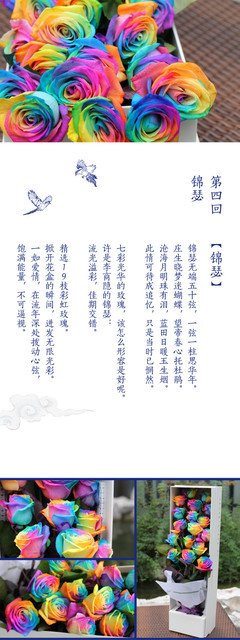 第四回
【锦瑟】
锦瑟
锦瑟无端五十弦，一弦一柱思华年。
庄生晓梦迷蝴蝶，望帝春心托杜鹃。
沧海月明珠有泪，蓝田日暖玉生烟。
此情可待成追忆，只是当时已惘然。
七彩光华的玫瑰，该怎么形容是好呢。
许是李商隐的锦瑟：
流光溢彩，佳期交错。
精选19枝彩虹玫瑰，
掀开花盒的瞬间，迸发无限光彩。
一如爱情，在流年深处拨动心弦，
饱满能量，不可逼视。